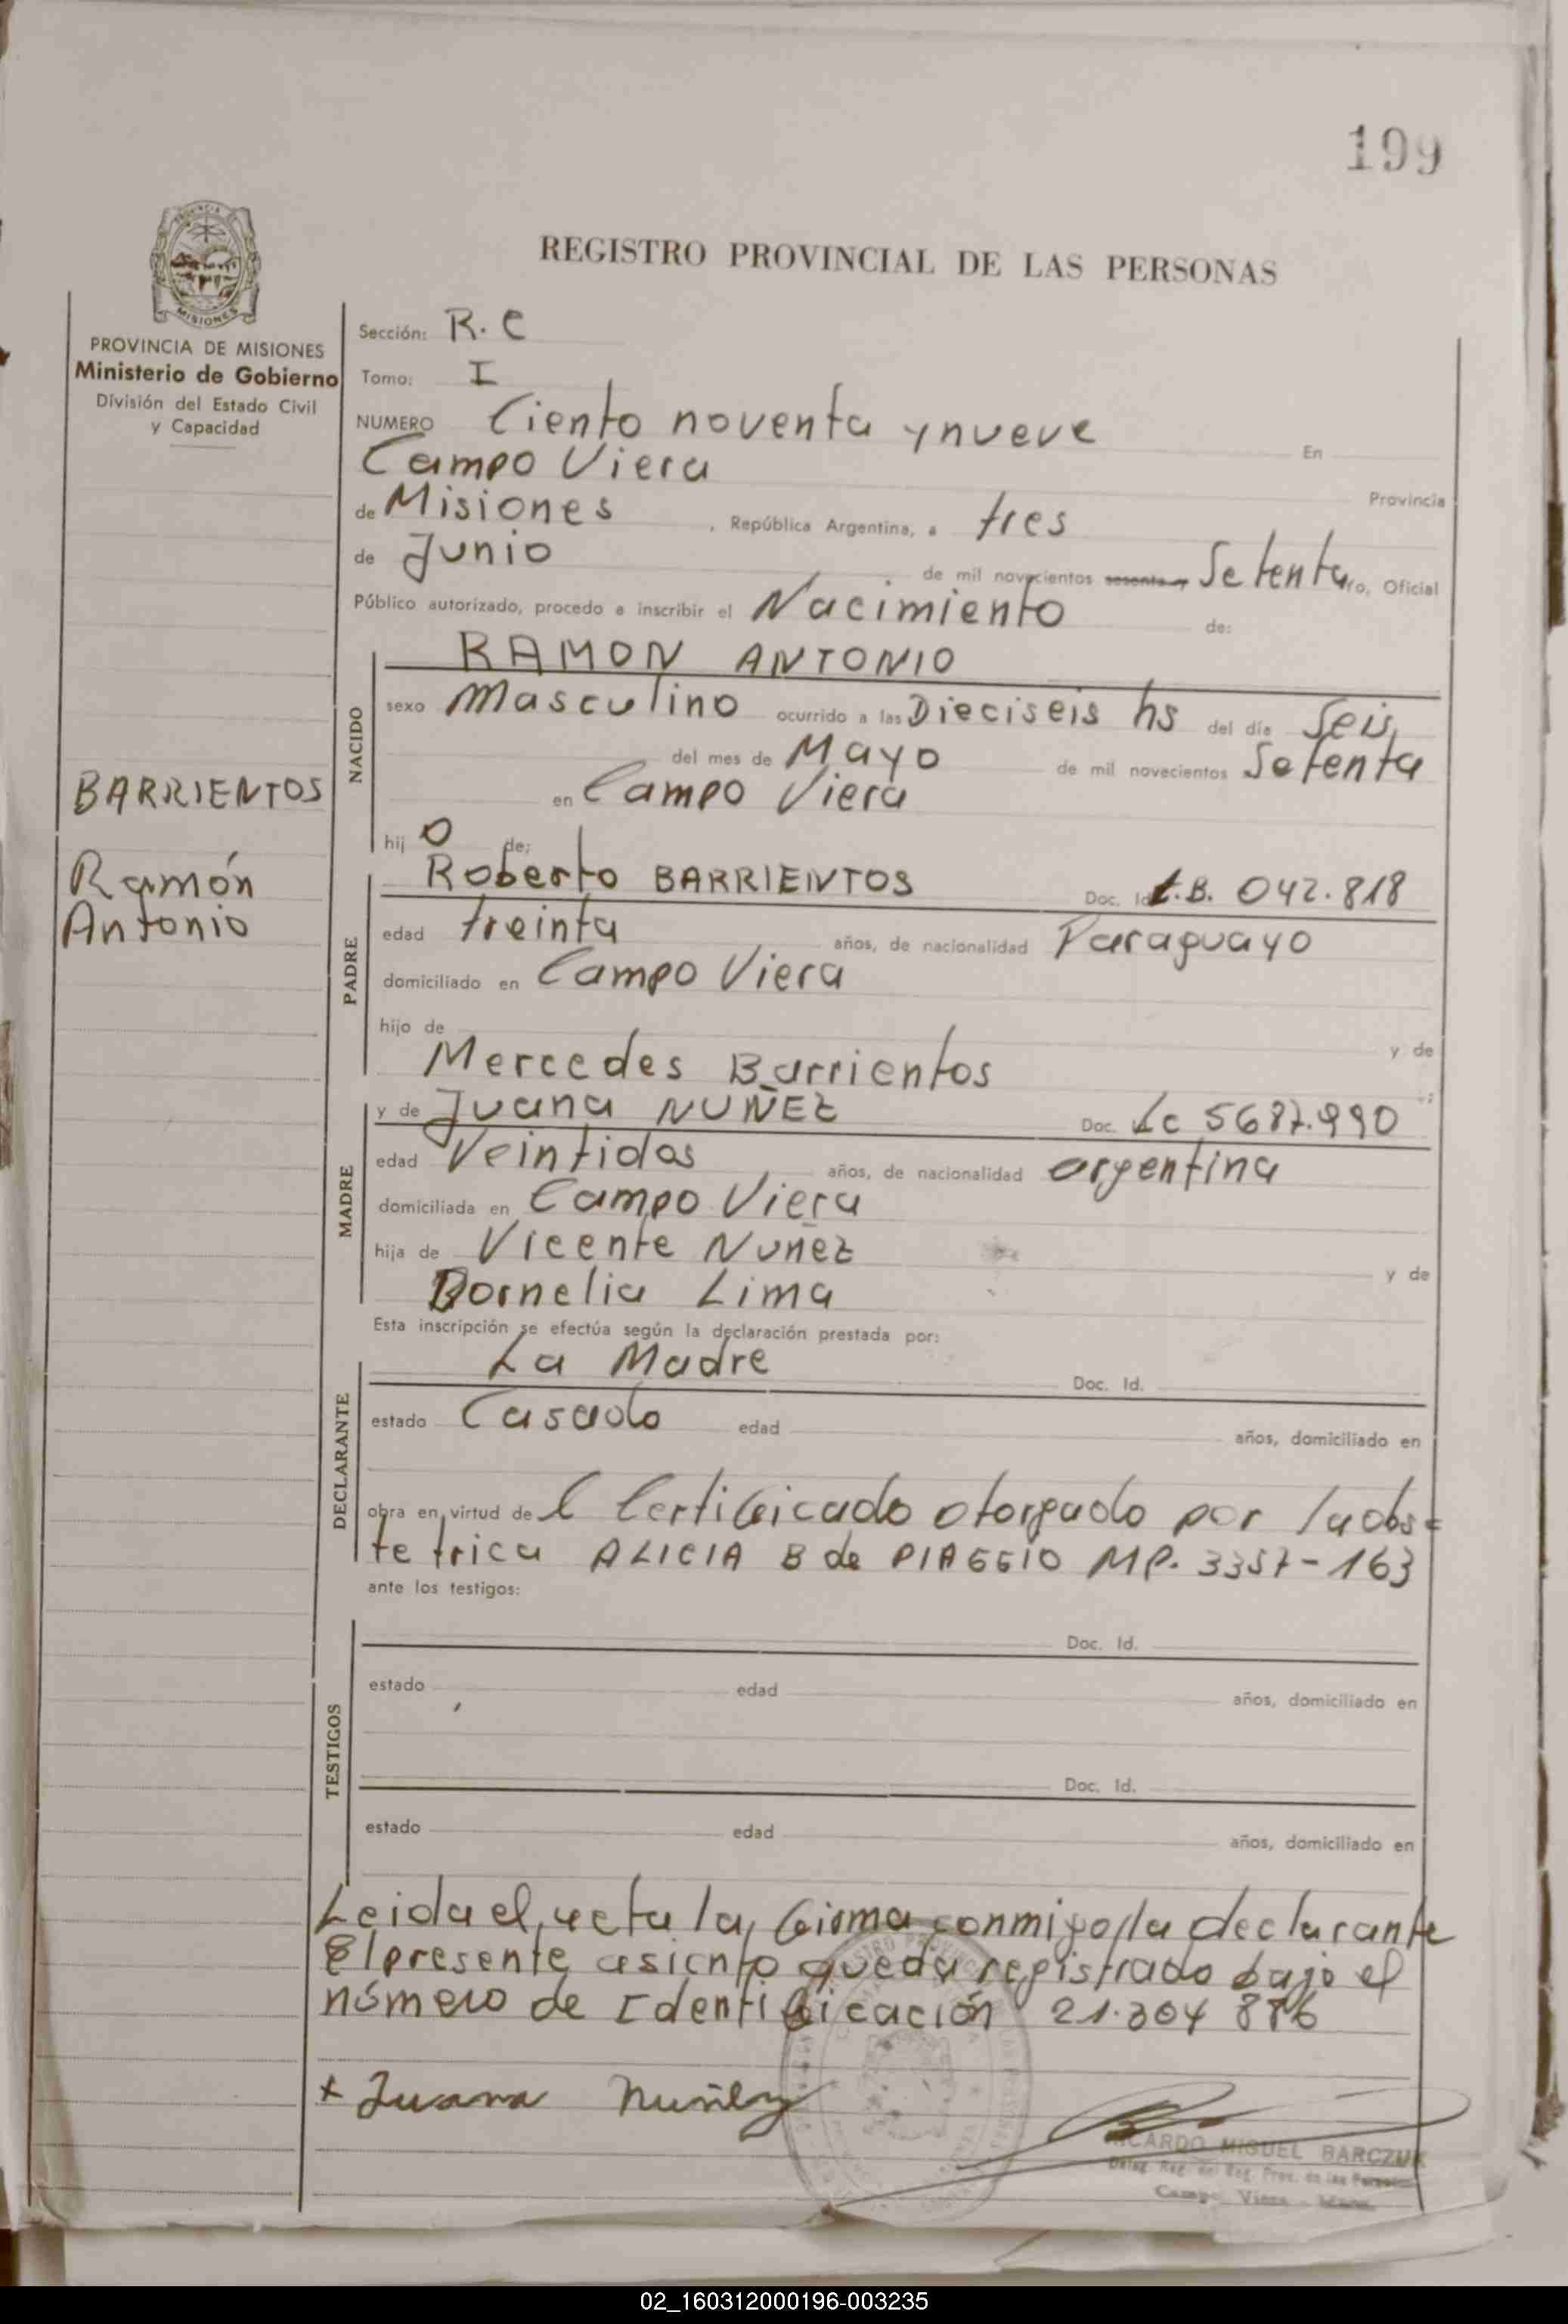 199
PROVINCIA
MISIONES
PROVINCIA DE MISIONES
Ministerio de Gobierno
División del Estado Civil
y Capacidad
REGISTRO PROVINCIAL DE LAS PERSONAS
Sección: R. C
Tomo: I
NUMERO Ciento noventa y nueve En
Campo Viera Provincia
de Misiones, República Argentina, a tres
de Junio de mil novecientos sesenta y Setenta ro, Oficial
Público autorizado, procedo a inscribir el Nacimiento de:
NACIDO
RAMON ANTONIO
sexo Masculino ocurrido a las Dieciseis hs del día Seis
del mes de Mayo de mil novecientos Setenta
en Campo Viera
hij o de:
BARRIENTOS
Ramón
Antonio
PADRE
Roberto BARRIENTOS Doc. Id. 042.818
edad treinta años, de nacionalidad Paraguayo
domiciliado en Campo Viera
hijo de y de
Mercedes Barrientos
MADRE
y de Juana NUÑEZ Doc. Lc 5687.990
edad Veintidos años, de nacionalidad argentina
domiciliada en Campo Viera
hija de Vicente Nuñez y de
Lima
Esta inscripción se efectúa según la declaración prestada por:
DECLARANTE
La Madre Doc. Id.
estado Casado edad años, domiciliado en
obra en virtud de l Certificado otorgado por la obs=
tetrica ALICIA B de PIAGGIO MP. 3357-163
ante los testigos:
TESTIGOS
Doc. Id.
estado edad años, domiciliado en
Doc. Id.
estado edad años, domiciliado en
Leida el acta la firma conmigo la declarante
El presente asiento queda registrado bajo el
número de Identificación 21.304 886
x Juana Nuñez
RICARDO MIGUEL BARCZUK
Deleg. Reg. del Reg. Prov. de las Personas
Campo Viera - Mnes.
02_160312000196-003235